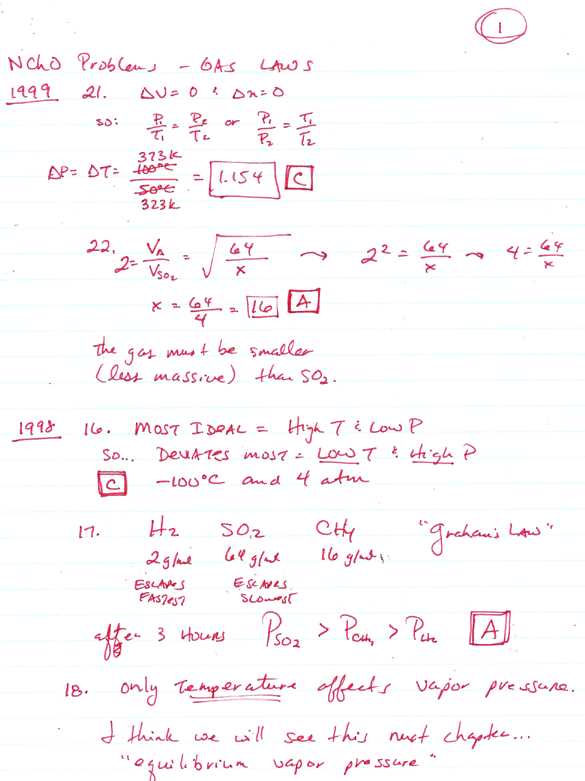 1
NChO Problems - GAS LAWS
1999 21. ΔV = 0 & Δn = 0
so: P₁/T₁ = P₂/T₂ or P₁/P₂ = T₁/T₂
ΔP = ΔT = 373K 100°C / 50°C 323K = 1.154 C
22. 2 = V_A/V_SO₂ = √(64/x) → 2² = 64/x → 4 = 64/x
x = 64/4 = 16 A
the gas must be smaller
(less massive) than SO₂.
1998 16. MOST IDEAL = High T & Low P
SO... DEVIATES most = LOW T & High P
C -100°C and 4 atm
17. H₂ SO₂ CH₄ "Graham's Law"
2 g/mol 64 g/mol 16 g/mol
ESCAPES ESCAPES
FASTEST SLOWEST
after 3 HOURS P_SO₂ > P_CH₄ > P_H₂ A
18. only Temperature affects vapor pressure.
I think we will see this next chapter...
"equilibrium vapor pressure"